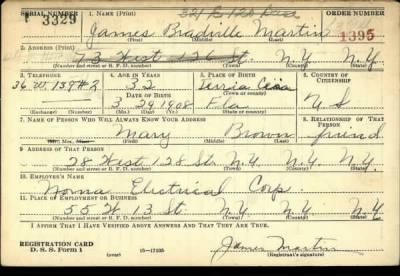 SERIAL NUMBER 1. NAME (Print) ORDER NUMBER
3329 James Bradville Martin 1395
(First) (Middle) (Last)
2. ADDRESS (Print)
3 West 126 St. N.Y. N.Y.
(Number and street or R. F. D. number) (Town) (County) (State)
3. TELEPHONE 4. AGE IN YEARS 5. PLACE OF BIRTH 6. COUNTRY OF CITIZENSHIP
32
DATE OF BIRTH (Town or county)
3 29 1908 Fla U.S
(Exchange) (Number) (Mo.) (Day) (Yr.) (State or country)
7. NAME OF PERSON WHO WILL ALWAYS KNOW YOUR ADDRESS 8. RELATIONSHIP OF THAT PERSON
Mary Brown friend
(Mr., Mrs., Miss) (First) (Middle) (Last)
9. ADDRESS OF THAT PERSON
28 West 128 St. N.Y. N.Y. N.Y.
(Number and street or R. F. D. number) (Town) (County) (State)
10. EMPLOYER'S NAME
Norma Electrical Corp.
11. PLACE OF EMPLOYMENT OR BUSINESS
55 W 13 St. N.Y. N.Y. N.Y
(Number and street or R. F. D. number) (Town) (County) (State)
I AFFIRM THAT I HAVE VERIFIED ABOVE ANSWERS AND THAT THEY ARE TRUE.
REGISTRATION CARD
D. S. S. Form 1 (over) James Martin
(Registrant's signature)